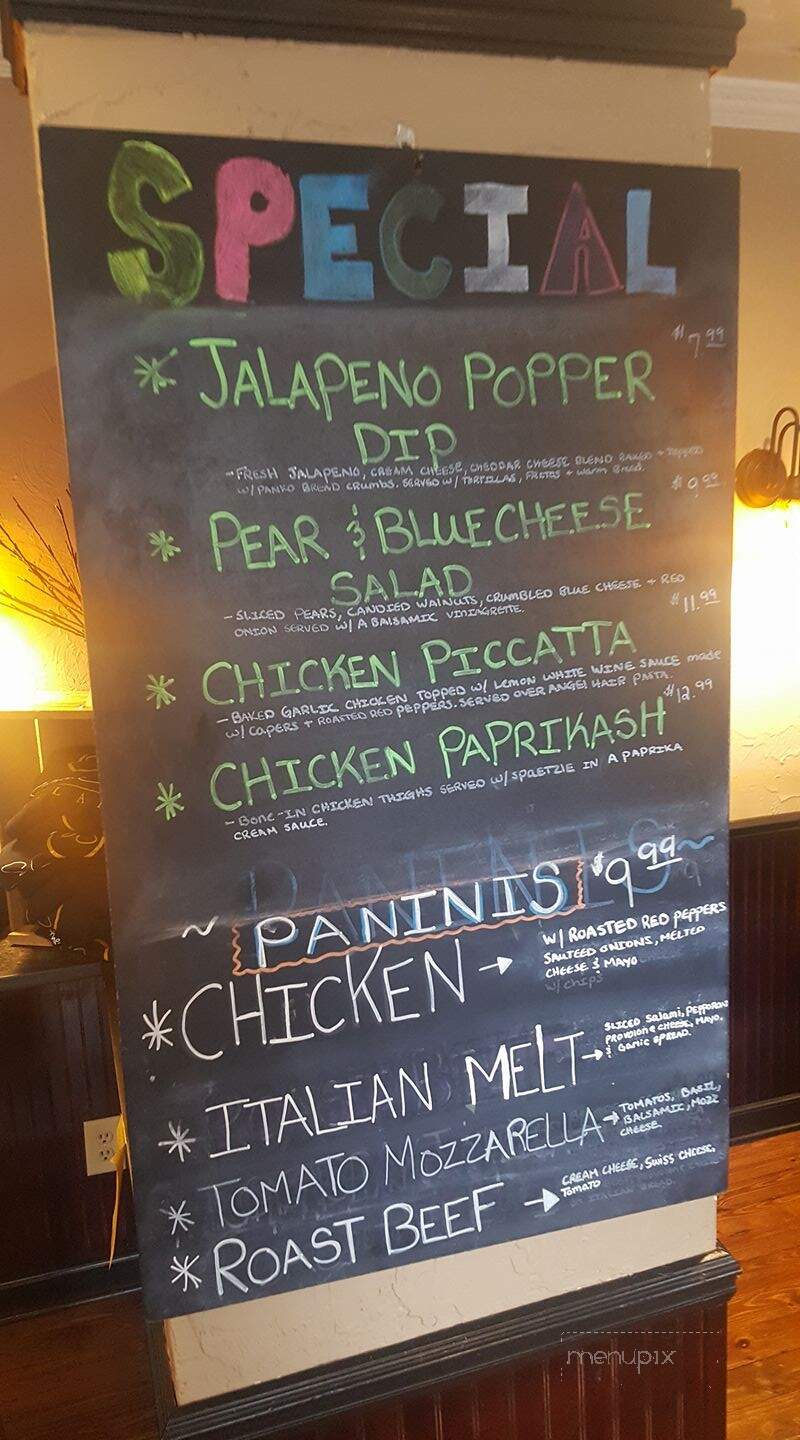 SPECIAL
$7.99
* JALAPENO POPPER
DIP
- FRESH JALAPENO, CREAM CHEESE, CHEDDAR CHEESE BLEND BAKED + TOPPED
W/ PANKO BREAD CRUMBS. SERVED W/ TORTILLAS, FRITOS + warm Bread.
$9.99
* PEAR & BLUECHEESE
SALAD
- SLICED PEARS, CANDIED WALNUTS, CRUMBLED BLUE CHEESE + RED
ONION SERVED W/ A BALSAMIC VINIAGRETTE.
$11.99
* CHICKEN PICCATTA
- BAKED GARLIC CHICKEN TOPPED W/ LEMON WHITE WINE SAUCE made
W/ CAPERS + ROASTED RED PEPPERS. SERVED OVER ANGEL HAIR PASTA.
$12.99
* CHICKEN PAPRIKASH
- BONE-IN CHICKEN THIGHS SERVED W/ SPAETZLE IN A PAPRIKA
CREAM SAUCE.
~ PANINIS ~ $9.99
* CHICKEN → W/ ROASTED RED PEPPERS
SAUTEED ONIONS, MELTED
CHEESE & MAYO
w/ chips
* ITALIAN MELT → SLICED Salami, PEPPORONI
PROVOLONE CHEESE, MAYO,
& Garlic SPREAD.
* TOMATO MOZZARELLA → TOMATOS, BASIL,
BALSAMIC, MOZZ
CHEESE
* ROAST BEEF → CREAM CHEESE, SWISS CHEESE,
Tomato
menupix